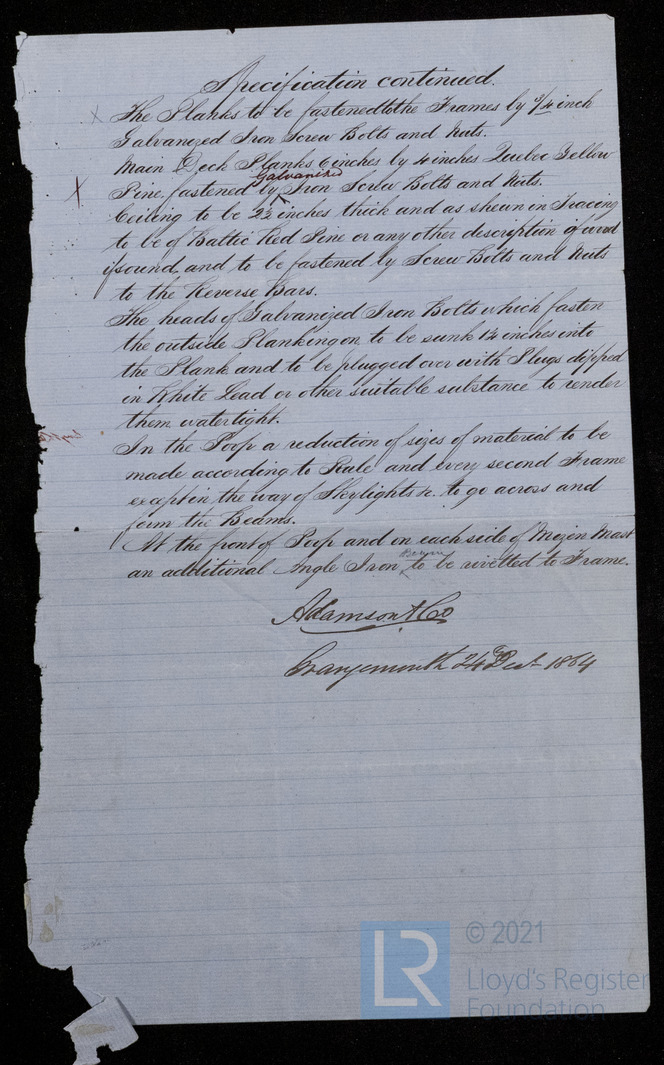 Specification continued.
x The Planks to be fastened to the Frames by 3/4 inch
Galvanized Iron Screw Bolts and Nuts.
Main Deck Planks 6 inches by 4 inches Quebec Yellow
Galvanized
x Pine, fastened by Iron Screw Bolts and Nuts.
Ceiling to be 2½ inches thick and as shewn on Tracing
to be of Baltic Red Pine or any other description of wood
if sound, and to be fastened by Screw Bolts and Nuts
to the Reverse Bars.
The heads of Galvanized Iron Bolts which fasten
the outside Planking on to be sunk 1¼ inches into
the Plank and to be plugged over with Plugs dipped
in White Lead or other suitable substance to render
them watertight.
In the Poop a reduction of sizes of material to be
made according to Rule and every second Frame
except in the way of Skylights &c. to go across and
form the Beams.
At the front of Poop and on each side of Mizen Mast
an additional Angle Iron to be rivetted to Frame.
Adamson & Co
Grangemouth 24 Dect 1864
LR
© 2021
Lloyd's Register
Foundation